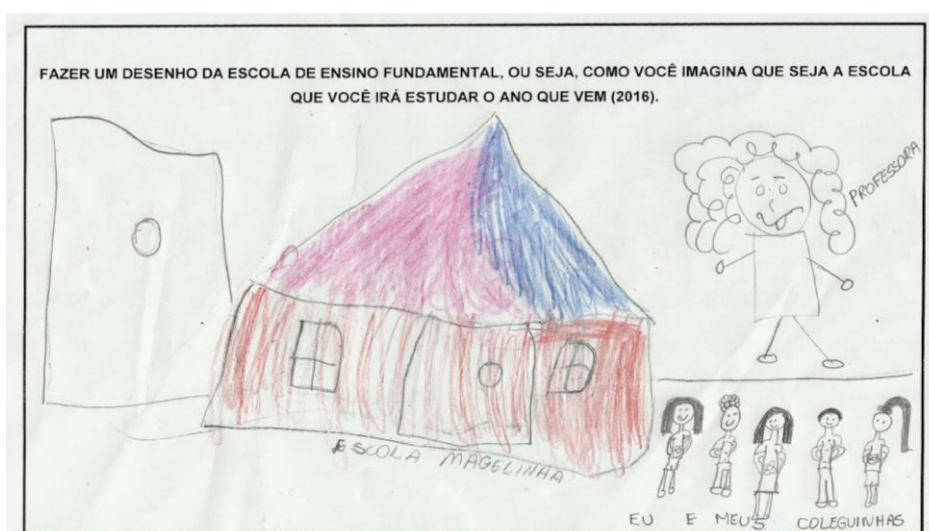 FAZER UM DESENHO DA ESCOLA DE ENSINO FUNDAMENTAL, OU SEJA, COMO VOCÊ IMAGINA QUE SEJA A ESCOLA
QUE VOCÊ IRÁ ESTUDAR O ANO QUE VEM (2016).
PROFESSORA
ESCOLA MAGELINHA
EU E MEUS COLEGUINHAS